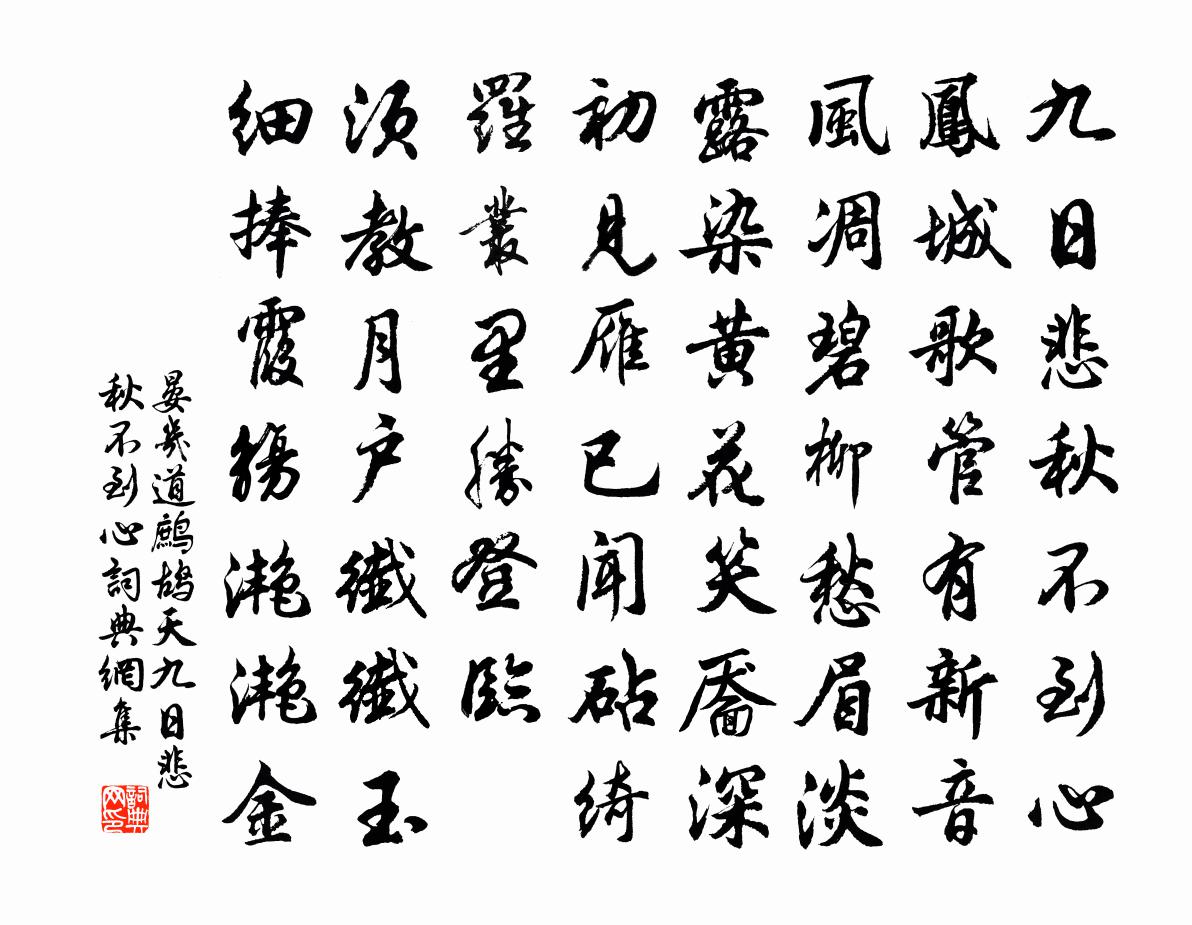 九日悲秋不到心
鳳城歌管有新音
風凋碧柳愁眉淡
露染黄花笑靨深
初見雁已聞砧綺
羅叢里勝登臨
須教月户纖纖玉
细捧霞觴灔灔金
晏幾道鷓鴣天九日悲
秋不到心詞典網集
詞典网印